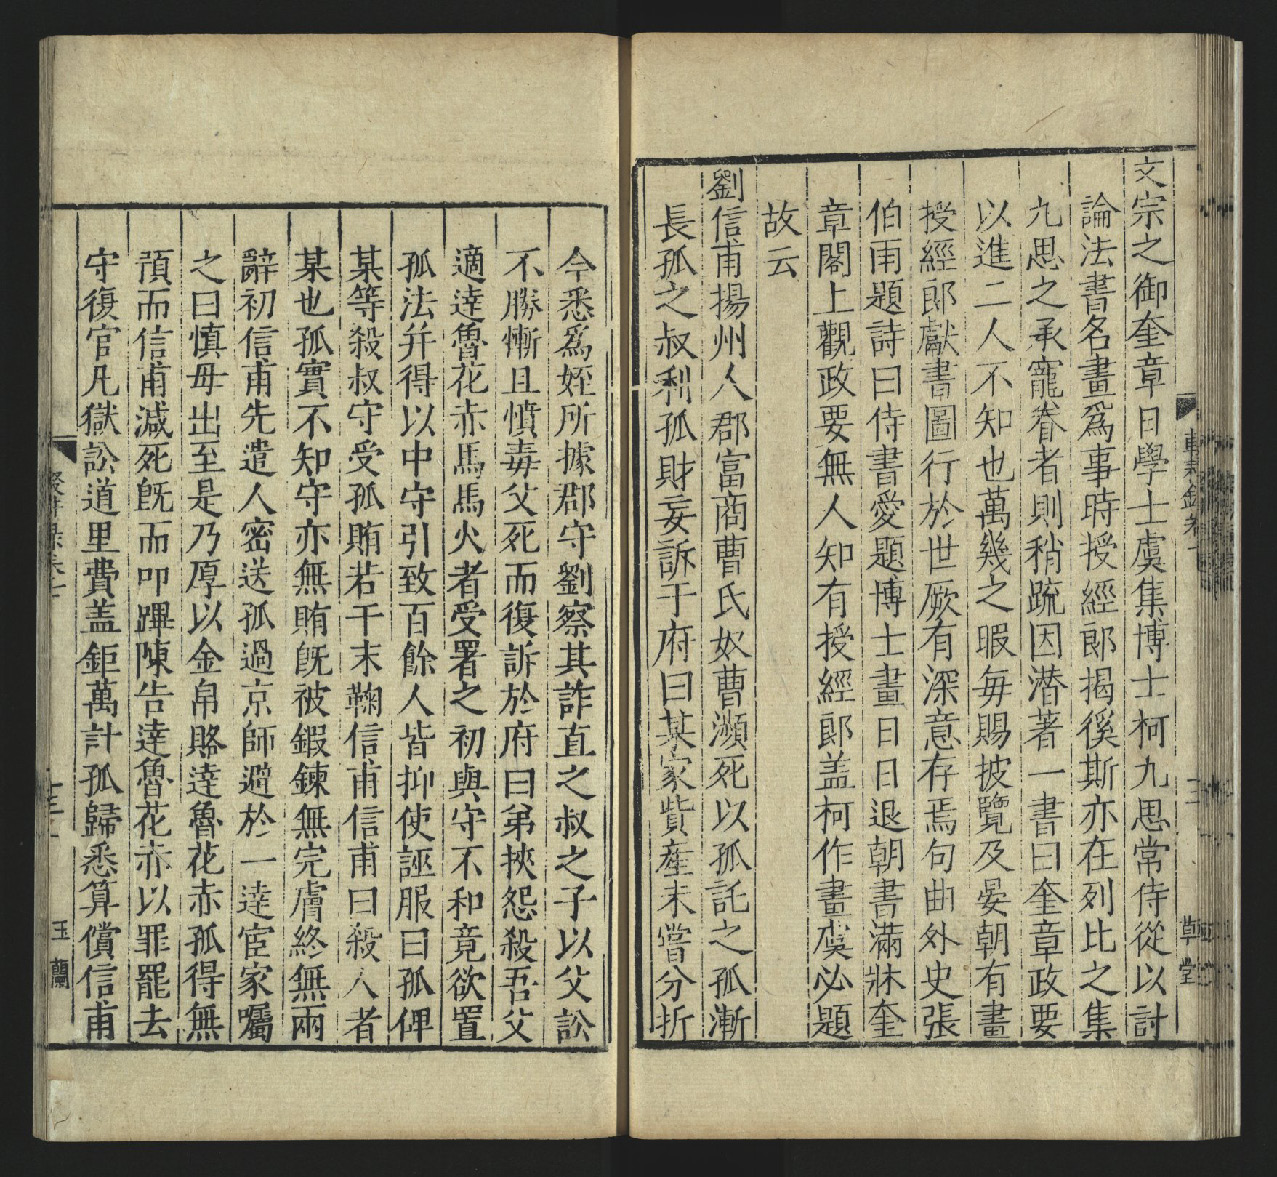 文宗之御奎章日學士虞集博士柯九思常侍從以討
論法書名畫爲事時授經郎揭徯斯亦在列比之集
九思之承寵眷者則稍疏因潛著一書曰奎章政要
以進二人不知也萬幾之暇每賜披覽及晏朝有畫
授經郎獻書圖行於世厥有深意存焉句曲外史張
伯雨題詩曰侍書愛題博士畫日日退朝書滿牀奎
章閣上觀政要無人知有授經郎盖柯作畫虞必題
故云
劉信甫揚州人郡富商曹氏奴曹瀕死以孤託之孤漸
長孤之叔利孤財妄訴于府曰某家貲產未嘗分折
今悉爲姪所據郡守劉察其詐直之叔之子以父訟
不勝慚且憤毒父死而復訴於府曰弟挾怨殺吾父
適達魯花赤馬馬火者受署之初與守不和竟欲置
孤法幷得以中守引致百餘人皆抑使誣服曰孤俾
某等殺叔守受孤賄若干末鞠信甫信甫曰殺人者
某也孤實不知守亦無賄旣被鍜鍊無完膚終無兩
辭初信甫先遣人密送孤過京師避於一達宦家囑
之曰慎毋出至是乃厚以金帛賂達魯花赤孤得無
預而信甫減死旣而叩蹕陳告達魯花赤以罪罷去
守復官凡獄訟道里費盖鉅萬計孤歸悉算償信甫
玉蘭
草堂